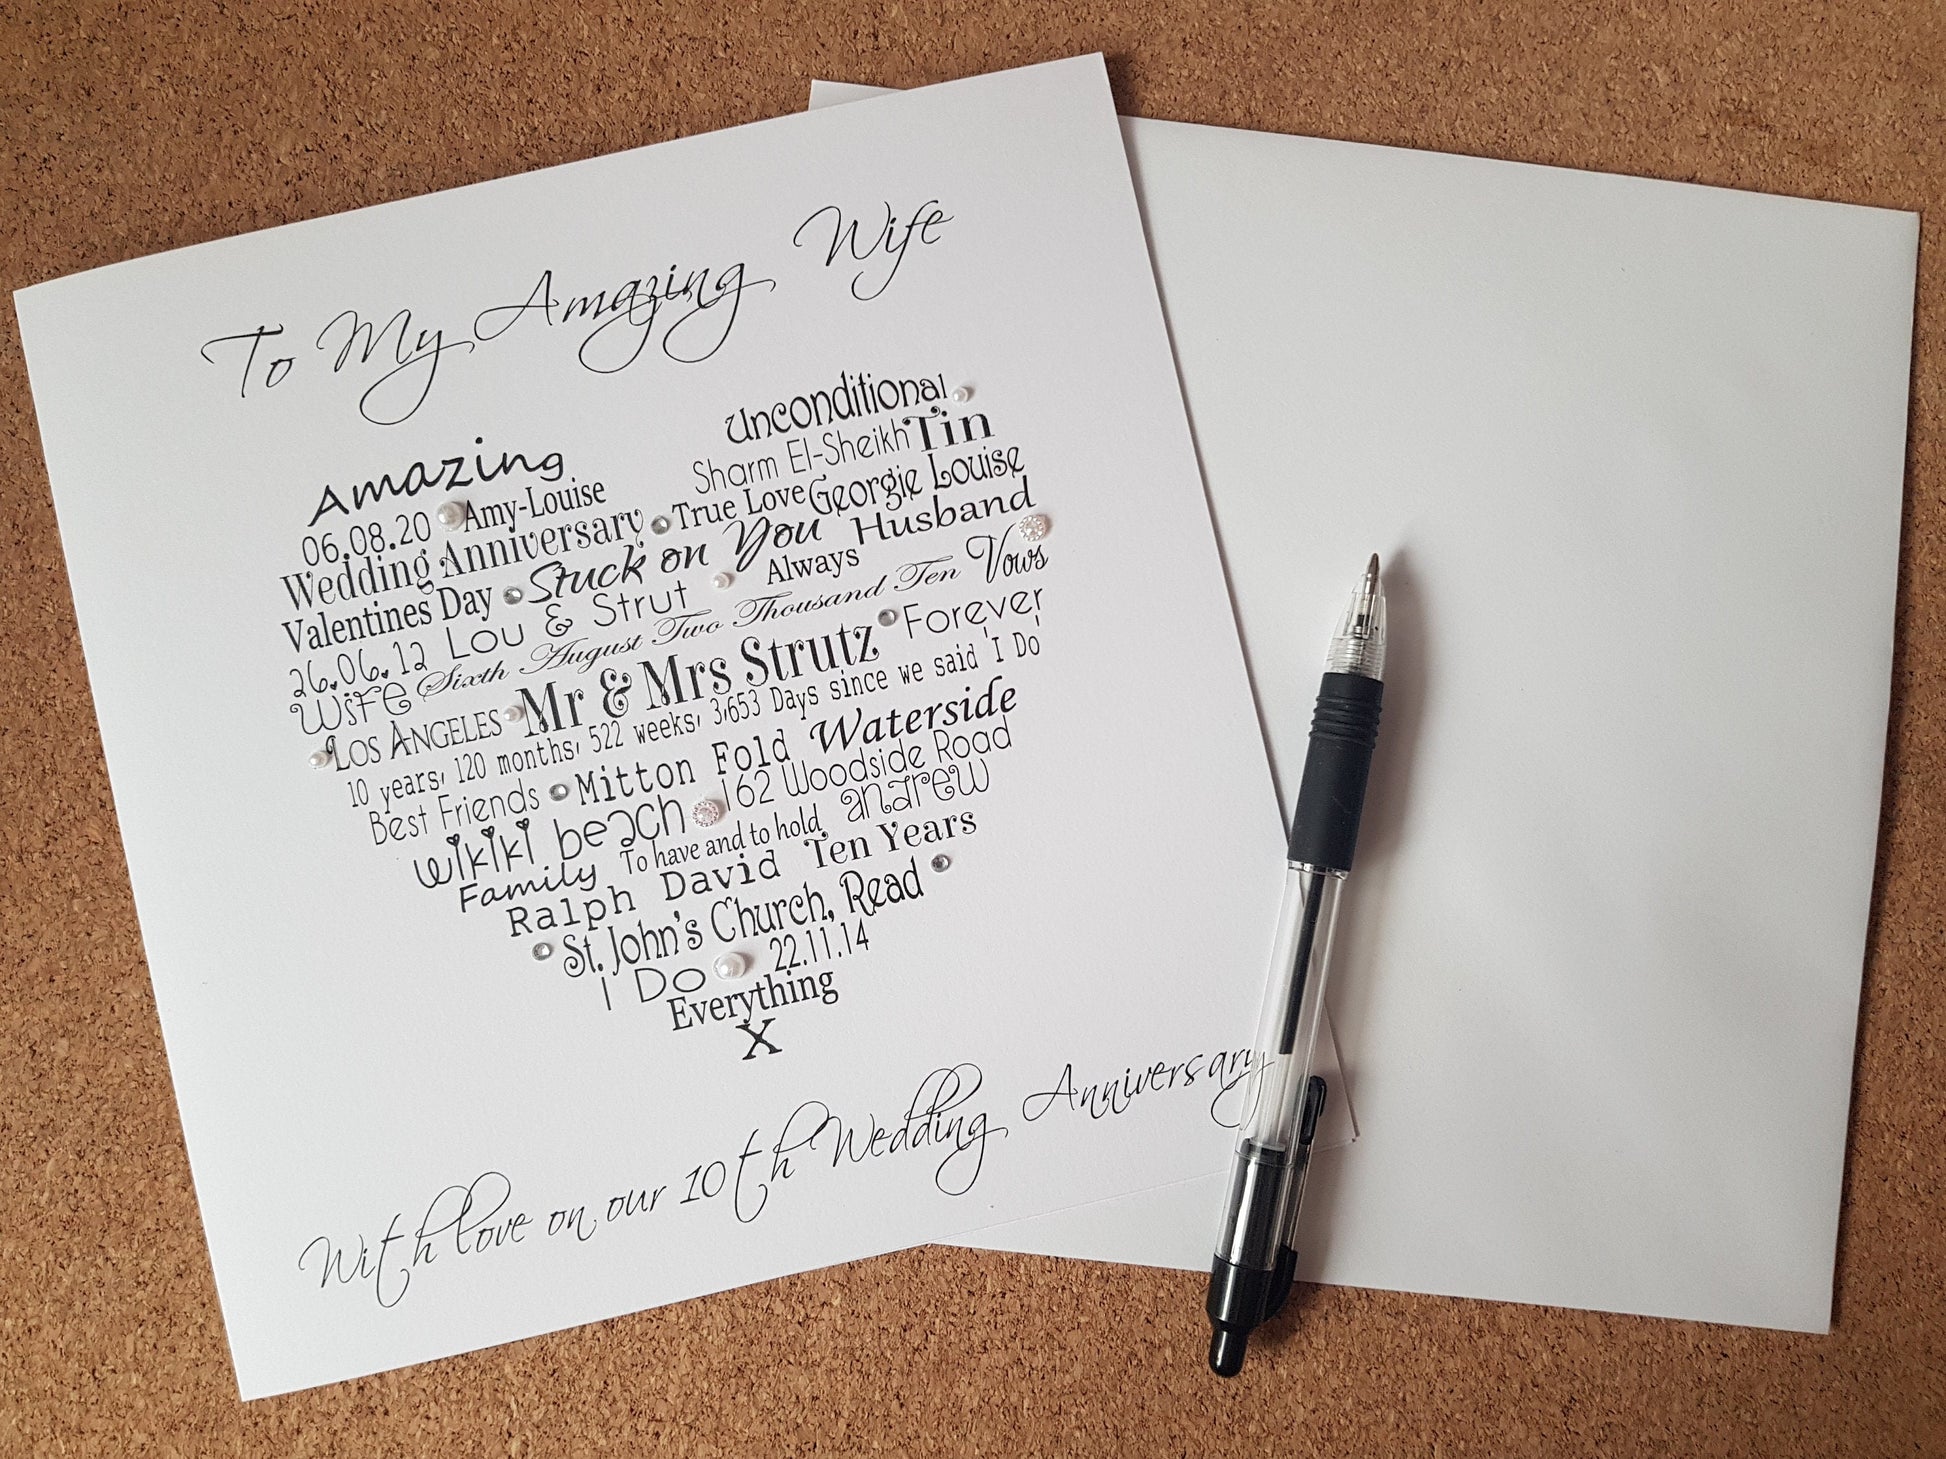 To My Amazing Wife
Unconditional
Amazing Sharm El-Sheikh Tin
06.08.20 Amy-Louise True Love Georgie Louise
Wedding Anniversary Stuck on You Husband
Valentines Day Lou & Strut Always
26.06.12 Sixth August Two Thousand Ten Vows
Wife Mr & Mrs Strutz Forever
Los Angeles
10 years, 120 months, 522 weeks, 3,653 Days since we said 'I Do'
Best Friends Mitton Fold Waterside
wikiki beach 162 Woodside Road
Family To have and to hold andrew
Ralph David Ten Years
St. John's Church, Read
I Do 22.11.14
Everything
X
With love on our 10th Wedding Anniversary